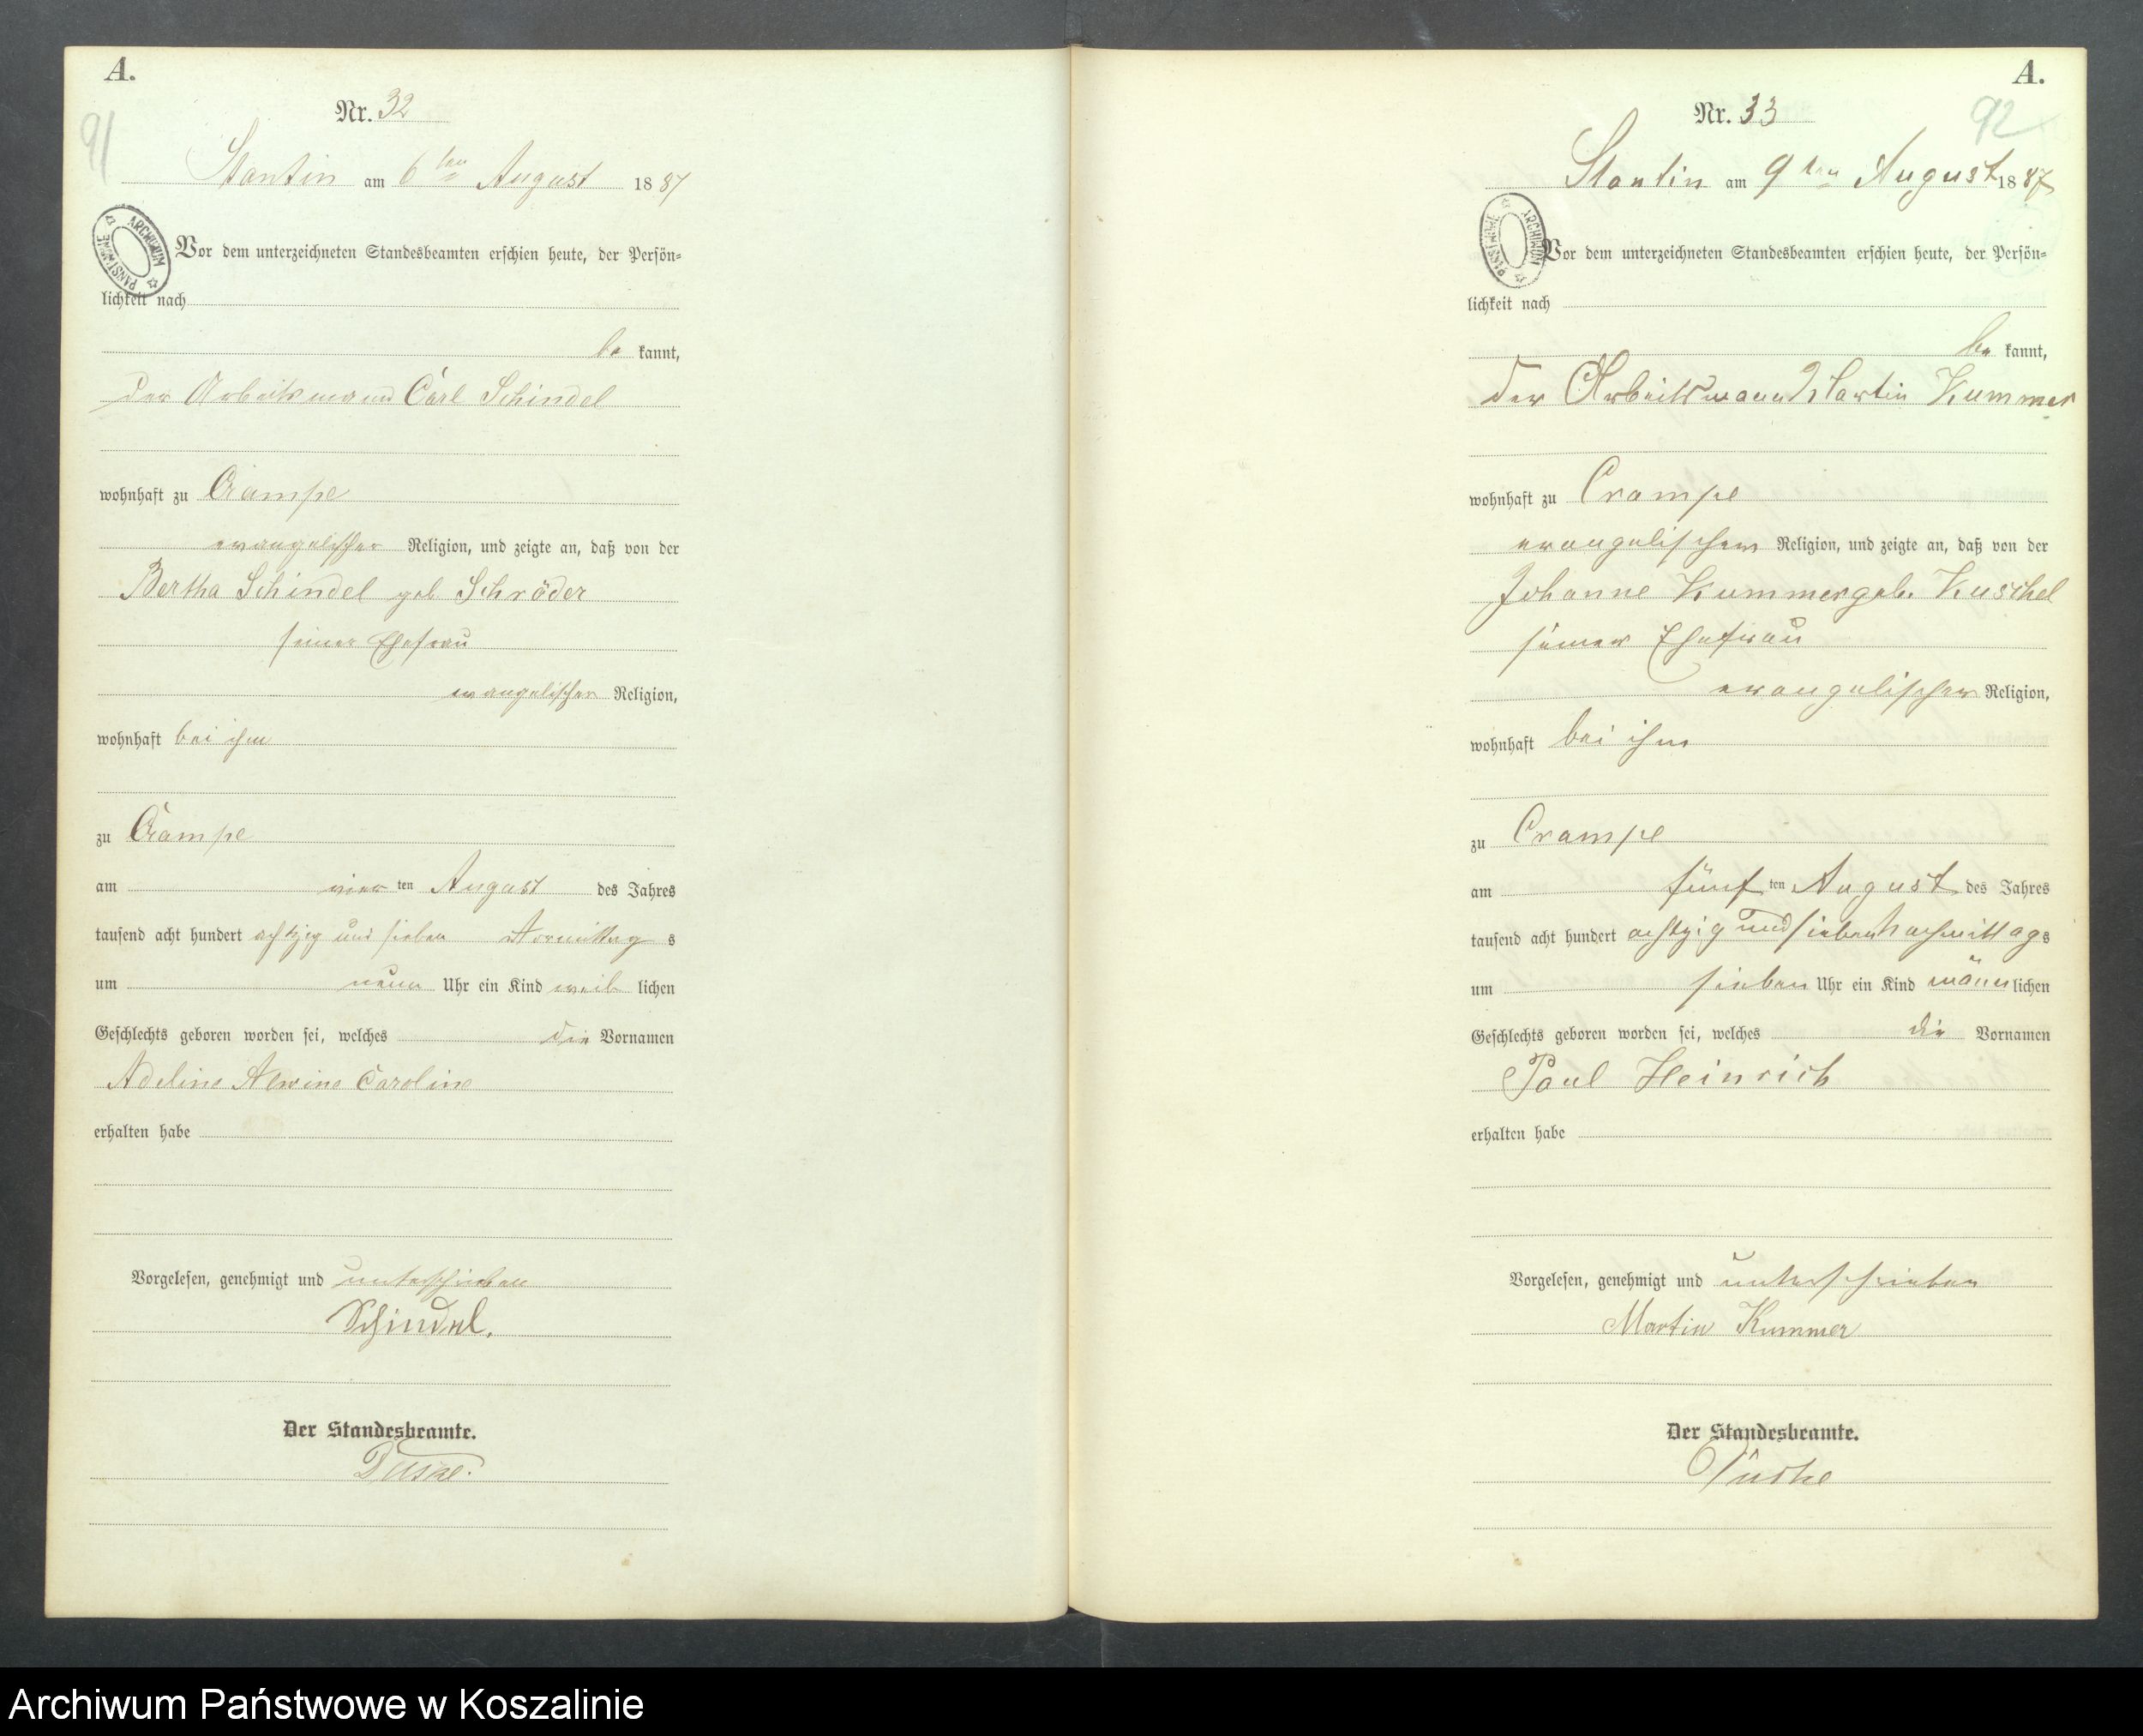 A.
91
Nr. 32
Stantin am 6ten August 1887
ARCHIWUM PAŃSTWOWE
Vor dem unterzeichneten Standesbeamten erschien heute, der Persön-
lichkeit nach
be kannt,
der Arbeitsmann Carl Schindel
wohnhaft zu Crampe
evangelischer Religion, und zeigte an, daß von der
Bertha Schindel geb Schröder
seiner Ehefrau
evangelischer Religion,
wohnhaft bei ihm
zu Crampe
am vier ten August des Jahres
tausend acht hundert achtzig und sieben Vormittag s
um neun Uhr ein Kind weib lichen
Geschlechts geboren worden sei, welches die Vornamen
Adeline Alwine Caroline
erhalten habe
Vorgelesen, genehmigt und unterschrieben
Schindel.
Der Standesbeamte.
A.
92
Nr. 33
Stantin am 9ten August 1887
ARCHIWUM PAŃSTWOWE
Vor dem unterzeichneten Standesbeamten erschien heute, der Persön-
lichkeit nach
be kannt,
der Arbeitsmann Martin Kummer
wohnhaft zu Crampe
evangelischer Religion, und zeigte an, daß von der
Johanne Kummer geb. Kuschel
seiner Ehefrau
evangelischer Religion,
wohnhaft bei ihm
zu Crampe
am fünf ten August des Jahres
tausend acht hundert achtzig und sieben Nachmittag s
um sieben Uhr ein Kind männ lichen
Geschlechts geboren worden sei, welches die Vornamen
Paul Heinrich
erhalten habe
Vorgelesen, genehmigt und unterschrieben
Martin Kummer
Der Standesbeamte.
Archiwum Państwowe w Koszalinie